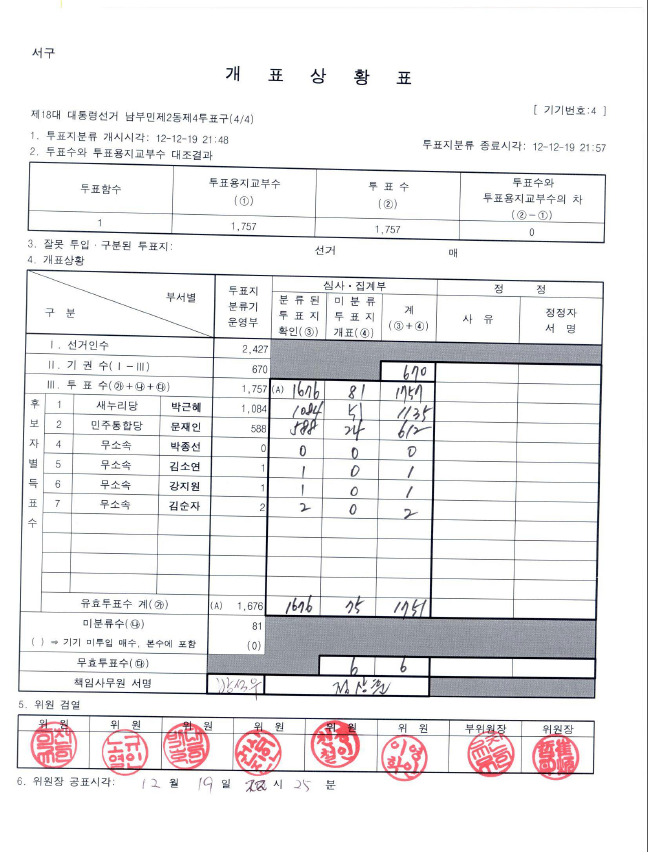 서구
개 표 상 황 표
[ 기기번호:4 ]
제18대 대통령선거 남부민제2동제4투표구(4/4)
1. 투표지분류 개시시각: 12-12-19 21:48
투표지분류 종료시각: 12-12-19 21:57
2. 투표수와 투표용지교부수 대조결과
투표함수 투표용지교부수 (①) 투 표 수 (②) 투표수와 투표용지교부수의 차 (②-①)
1 1,757 1,757 0
3. 잘못 투입·구분된 투표지: 선거 매
4. 개표상황
구 분 부서별 투표지 분류기 운영부 심사·집계부 정 정
분 류 된 투 표 지 확인(③) 미 분 류 투 표 지 개표(④) 계 (③+④) 사 유 정정자 서 명
Ⅰ. 선거인수 2,427
Ⅱ. 기 권 수(Ⅰ-Ⅲ) 670 670
Ⅲ. 투 표 수(㉮+㉯+㉰) 1,757 (A) 1676 81 1757
후보자별득표수
1 새누리당 박근혜 1,084 1084 51 1135
2 민주통합당 문재인 588 588 24 612
4 무소속 박종선 0 0 0 0
5 무소속 김소연 1 1 0 1
6 무소속 강지원 1 1 0 1
7 무소속 김순자 2 2 0 2
유효투표수 계(㉮) (A) 1,676 1676 75 1751
미분류수(㉯) 81
( ) ⇒ 기기 미투입 매수, 본수에 포함 (0)
무효투표수(㉰) 6 6
책임사무원 서명
5. 위원 검열
위 원 위 원 위 원 위 원 위 원 위 원 부위원장 위원장
6. 위원장 공표시각: 12 월 19 일 시 25 분